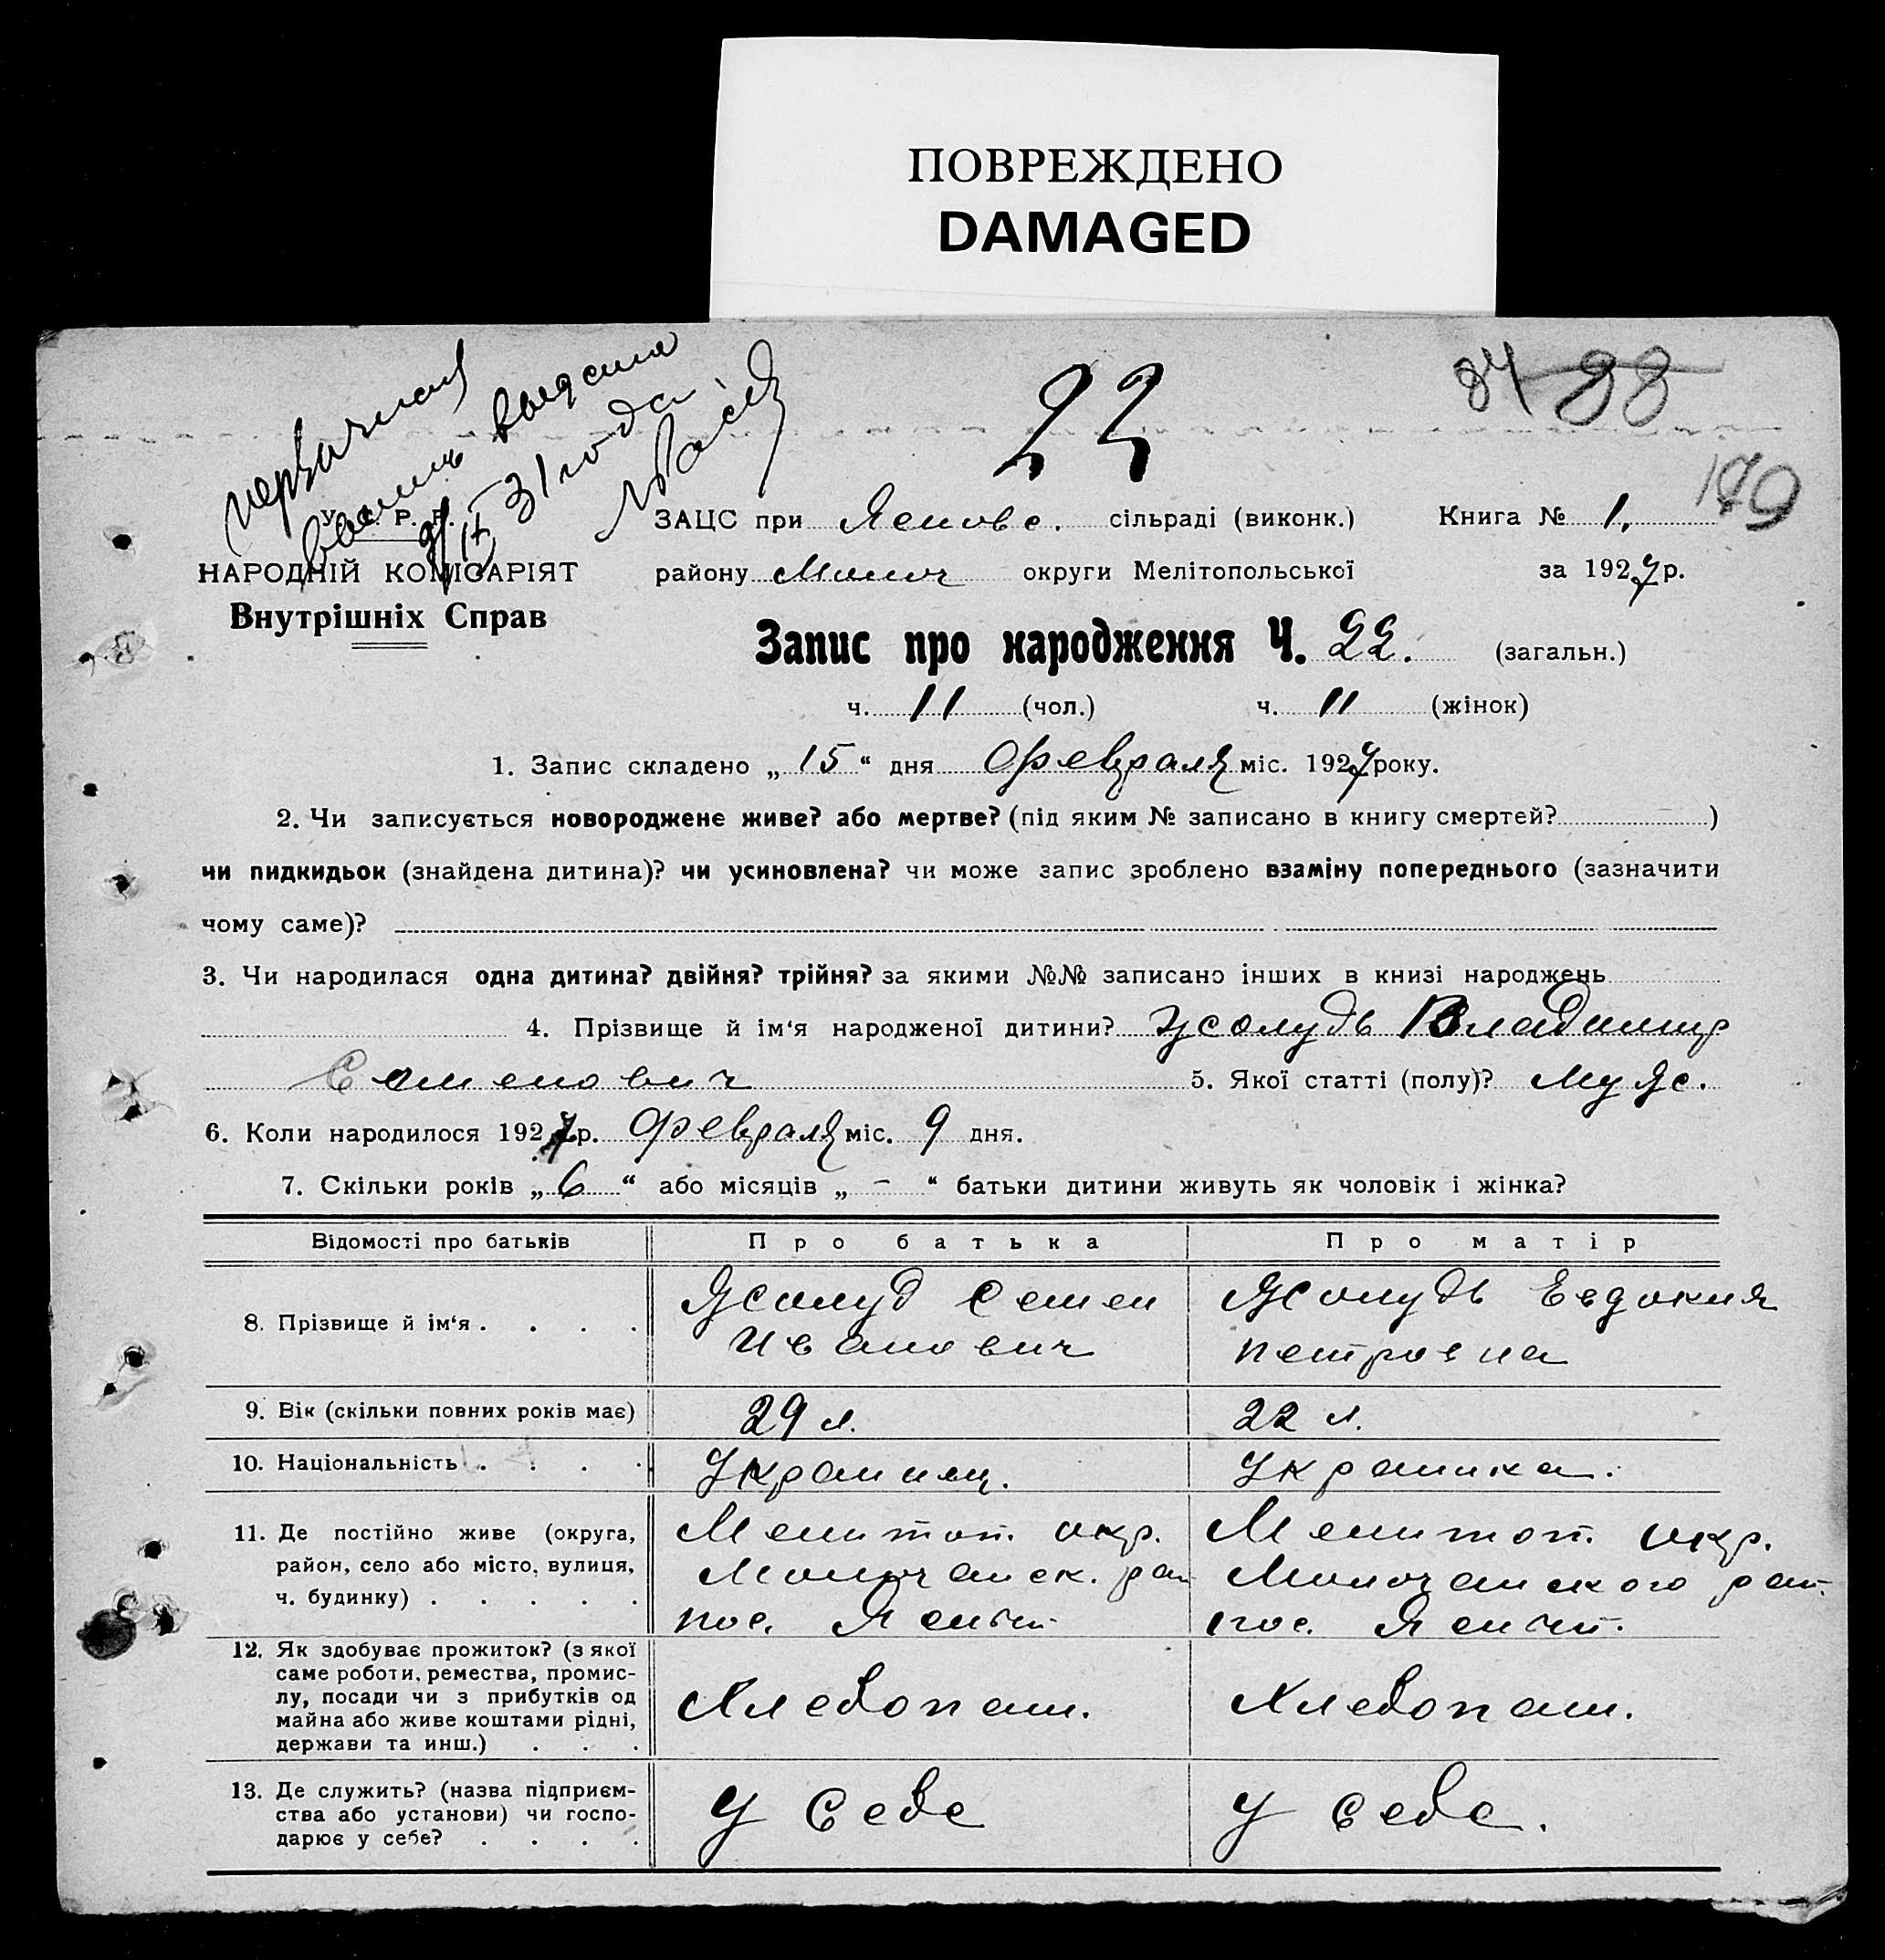 ПОВРЕЖДЕНО
DAMAGED
84 88
22
179
первичная
выдана
31 года
У. С. Р. Р.
НАРОДНІЙ КОМІСАРІЯТ
Внутрішніх Справ
ЗАЦС при сільраді (виконк.) Книга № 1.
району Молоч округи Мелітопольської за 1927 р.
Запис про народження Ч. 22. (загальн.)
ч. 11 (чол.) ч. 11 (жінок)
1. Запис складено „ 15 “ дня Февраля міс. 1927 року.
2. Чи записується новороджене живе? або мертве? (під яким № записано в книгу смертей? )
чи пидкидьок (знайдена дитина)? чи усиновлена? чи може запис зроблено взаміну попереднього (зазначити
чому саме)?
3. Чи народилася одна дитина? двійня? трійня? за якими №№ записано інших в книзі народжень
4. Прізвище й ім‘я народженої дитини? Жолудь Владимир
Семенович 5. Якої статті (полу)? Муж.
6. Коли народилося 1927 р. Февраля міс. 9 дня.
7. Скільки років „ 6 “ або місяців „ - “ батьки дитини живуть як чоловік і жінка?
Відомості про батьків Про батька Про матір
8. Прізвище й ім‘я . . . . Жолуд Семен Жолудь Евдокия
Иванович Петровна
9. Вік (скільки повних років має) 29 л. 22 л.
10. Національність . . . . Украинец. Украинка.
11. Де постійно живе (округа, Мелитоп. окр. Мелитоп. окр.
район, село або місто, вулиця, Молочанск. рай Молочанского рай.
ч. будинку) . . . . . пос. пос.
12. Як здобуває прожиток? (з якої
саме роботи, ремества, промис-
лу, посади чи з прибутків од Хлебопаш. Хлебопаш.
майна або живе коштами рідні,
держави та инш.) . . .
13. Де служить? (назва підприєм-
ства або установи) чи госпо- У Себе У Себе.
дарює у себе? . . . .